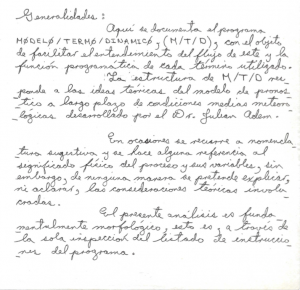 Generalidades:
Aquí se documenta el programa
MØDELØ/TERMØ/DINAMICØ, (M/T/D), con el objeto
de facilitar el entendimiento del flujo de este y la
función programática de cada término utilizado.
La estructura de M/T/D res-
ponde a las ideas teóricas del modelo de pronós-
tico a largo plazo de condiciones medias meteoro-
lógicas desarrollado por el Dr. Julian Adem.
En ocasiones se recurre a nomencla-
tura sugestiva y se hace alguna referencia al
significado físico del proceso y sus variables, sin
embargo, de ninguna manera se pretende explicar,
ni aclarar, las consideraciones teóricas involu-
cradas.
El presente análisis es funda-
mentalmente morfológico, esto es, a través de
la sola inspección del listado de instruccio-
nes del programa.